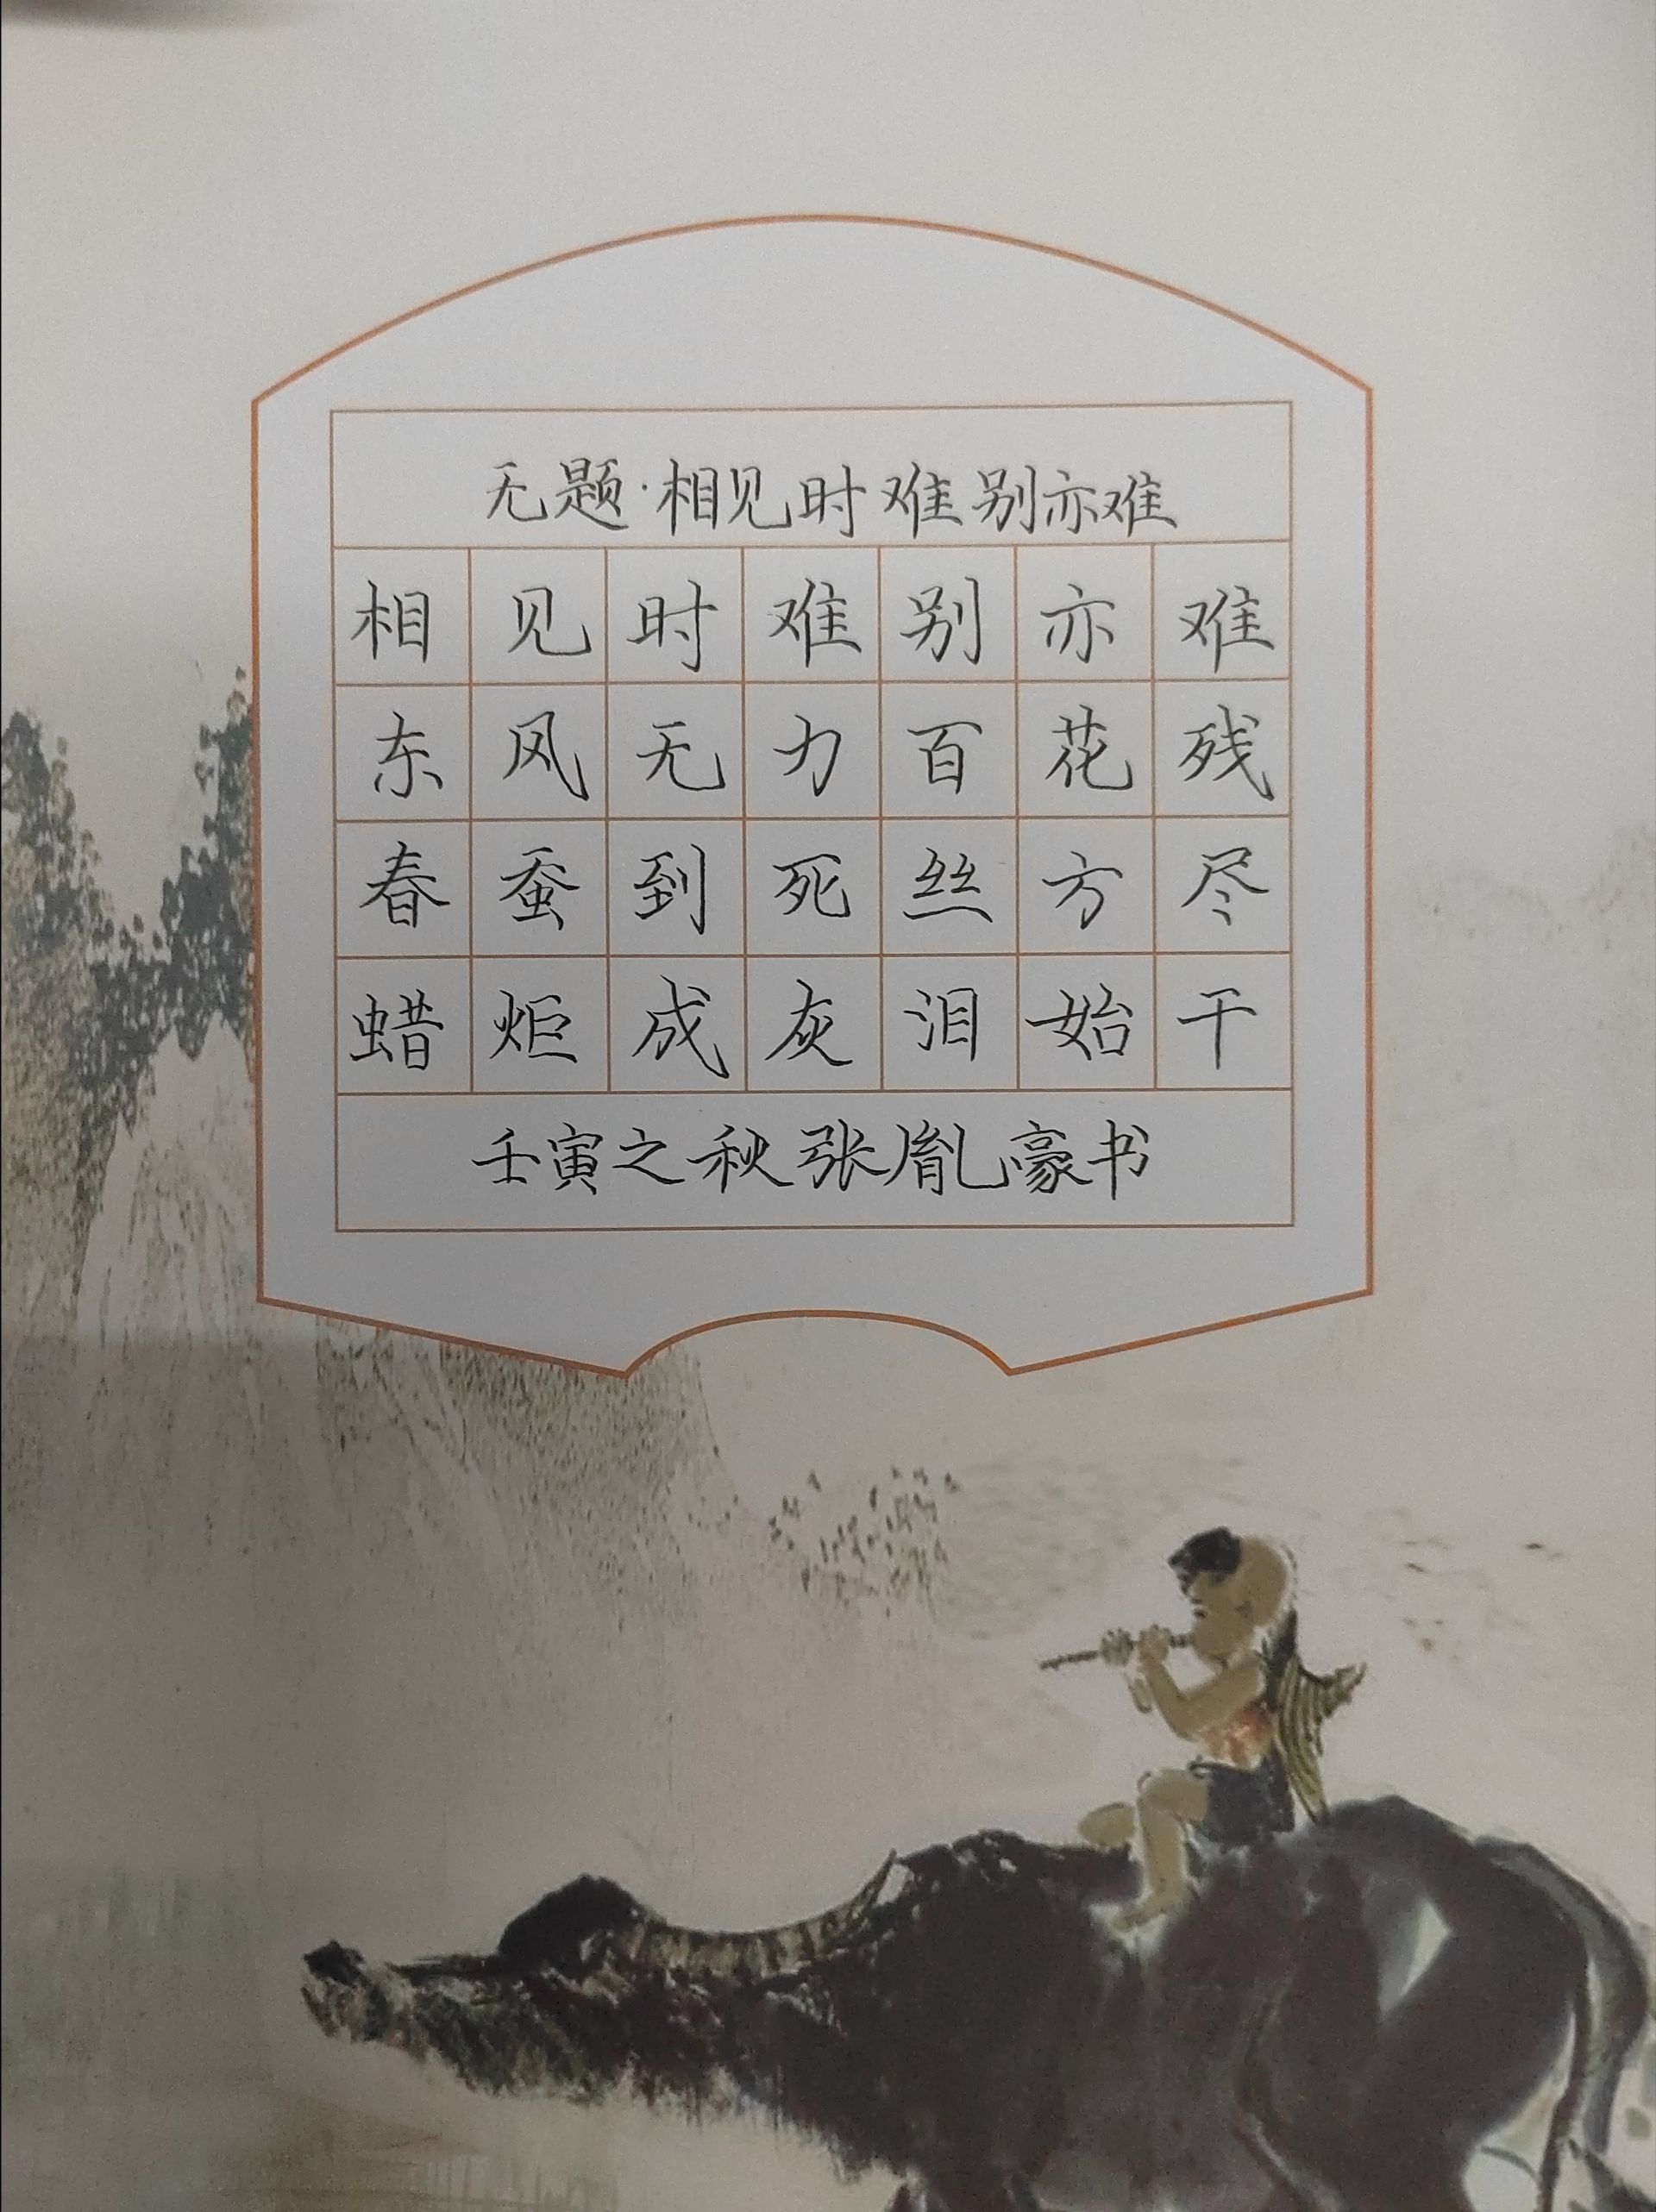 无题·相见时难别亦难
相见时难别亦难
东风无力百花残
春蚕到死丝方尽
蜡炬成灰泪始干
壬寅之秋张胤豪书